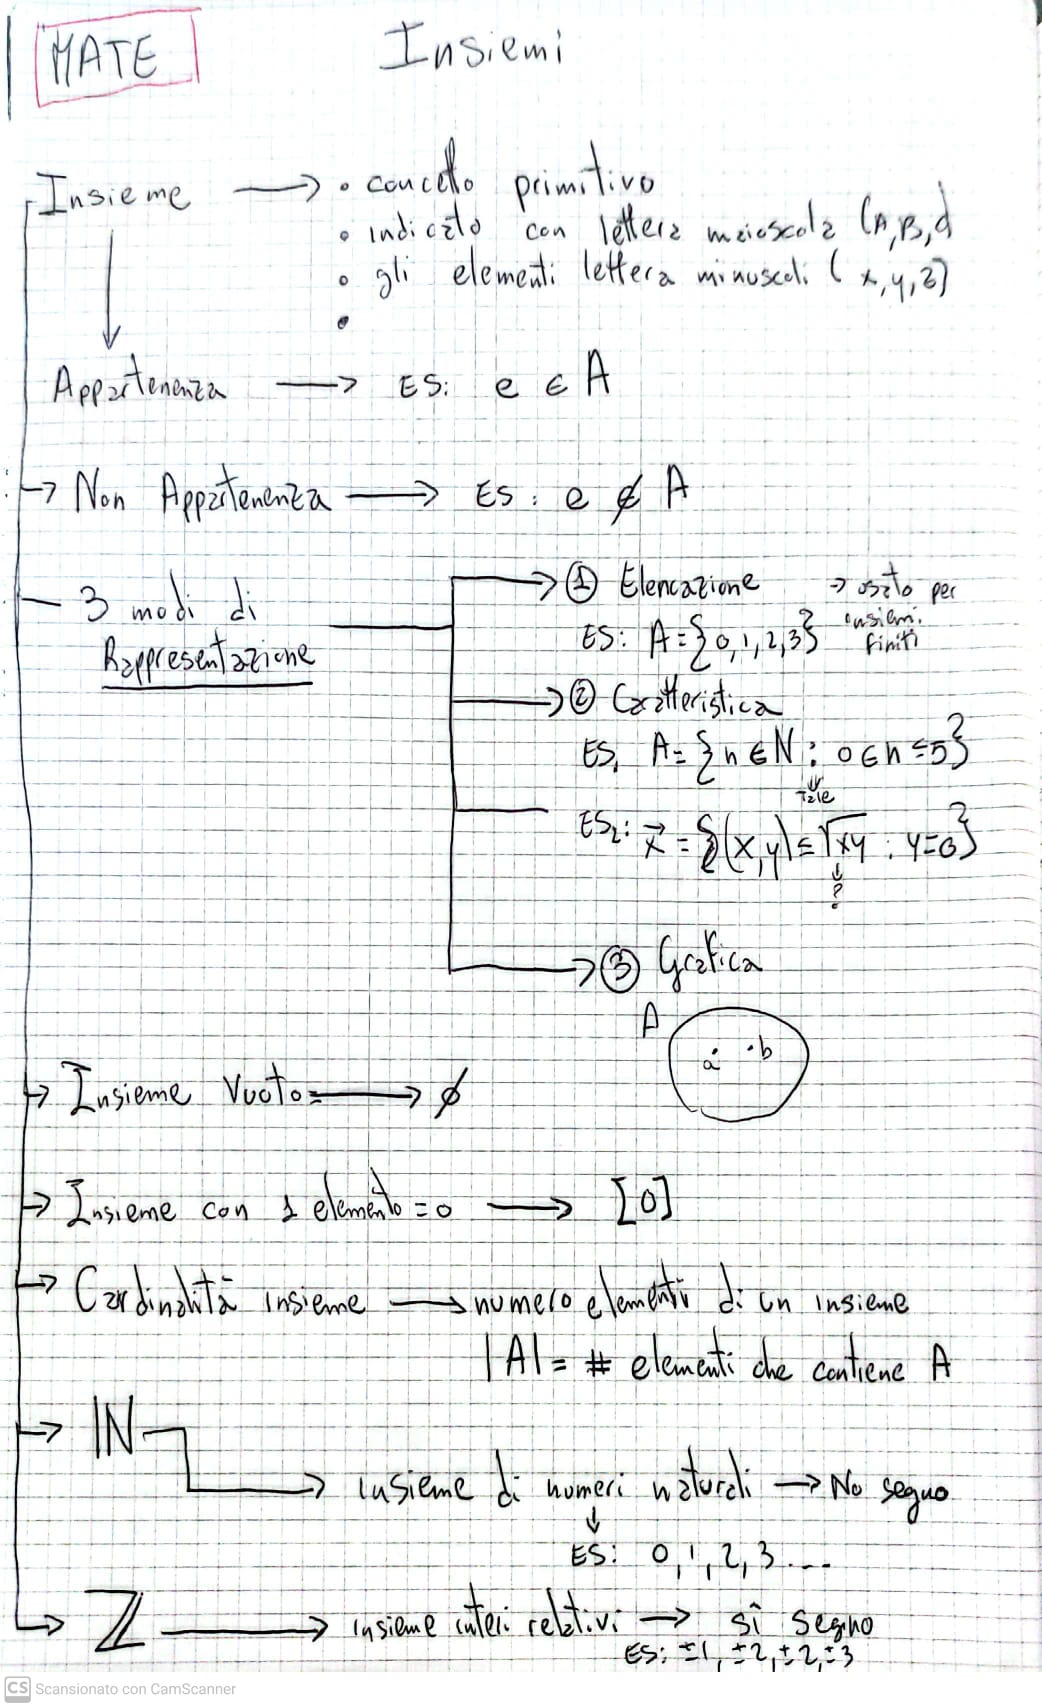 MATE
Insiemi
Insieme → • concetto primitivo
• indicato con lettera maioscola (A,B,d
• gli elementi lettera minuscoli (x,y,z)
•
Appartenenza → ES: e ∈ A
→ Non Appartenenza → ES: e ∉ A
3 modi di
Rappresentazione
→ ① Elencazione → usato per
insiemi
finiti
ES: A={0,1,2,3}
→ ② Caratteristica
ES, A={n∈N: 0∈n≤5}
↓
tale
ES₂: x⃗ = {(x,y)≤√xy : y=0}
↓
?
→ ③ Grafica
A
a •b
→ Insieme Vuoto= → ∅
→ Insieme con 1 elemento = 0 → [0]
→ Cardinalità insieme → numero elementi di un insieme
|A| = # elementi che contiene A
→ IN
→ insieme di numeri naturali → No segno
↓
ES: 0,1,2,3....
→ Z → insieme interi relativi → sì segno
ES: ±1, ±2, ±2, ±3
CS Scansionato con CamScanner